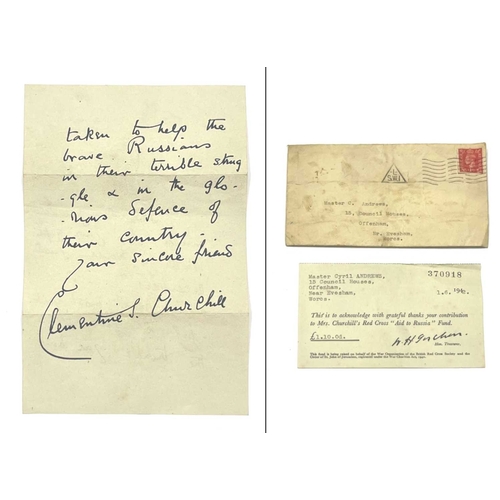 taken to help the
brave Russians
in their terrible strug
gle & in the glo-
-rious defence of
their country.
Your sincere friend
Clementine S. Churchill
Master C. Andrews,
18, Council Houses,
Offenham,
Nr. Evesham,
Worcs.
Master Cyril ANDREWS,
18 Council Houses,
Offenham,
Near Evesham,
Worcs.
370918
This is to acknowledge with grateful thanks your contribution
to Mrs. Churchill's Red Cross "Aid to Russia" Fund.
£1.10.0d.
Hon. Treasurer.
This fund is being raised on behalf of the War Organisation of the British Red Cross Society and the
Order of St. John of Jerusalem, registered under the War Charities Act, 1940.